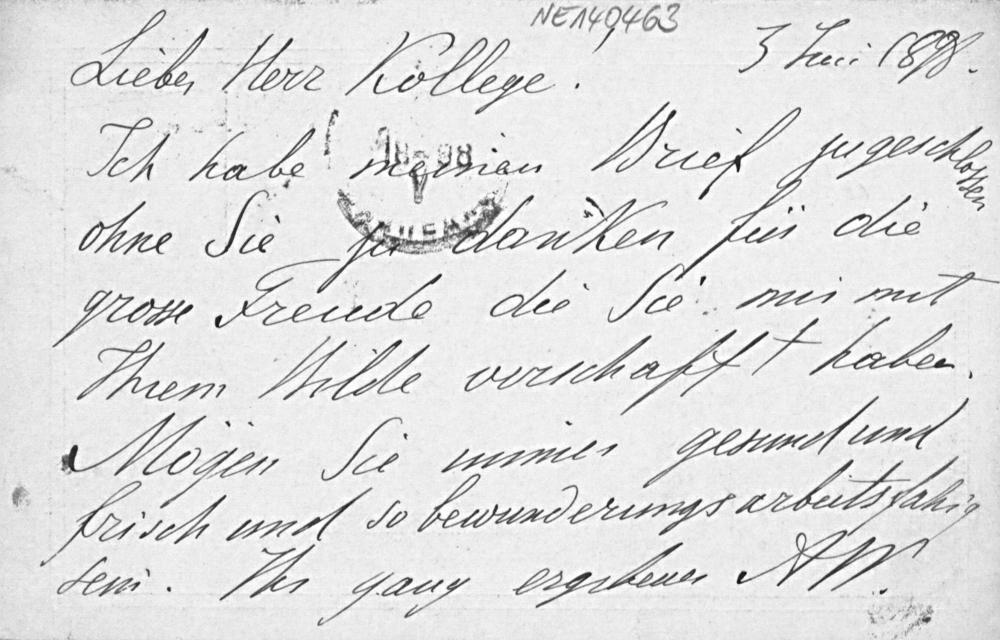 NE140,463
3 Juni 1898.
Lieber Herr Kollege.
Ich habe meinen Brief zugeschlossen
ohne Sie zu danken für die
grosse Freude die Sie mir mit
Ihrem Bilde verschafft haben.
Mögen Sie immer gesund und
frisch und so bewunderungsarbeitsfähig
sein. Ihr ganz ergebener AW.